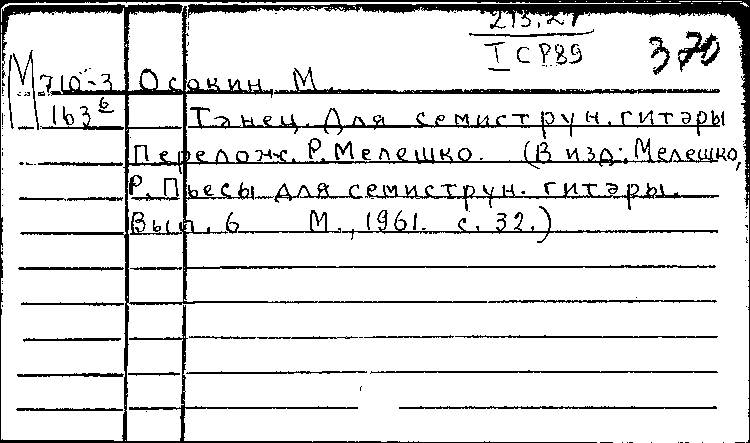 213.21
I СР89
370
М 710-3 Осокин, М.
163б Танец. Для семиструн. гитары
Перелож. Р. Мелешко. (В изд: Мелешко,
Р. Пьесы для семиструн. гитары.
Вып. 6 М., 1961. с. 32.)